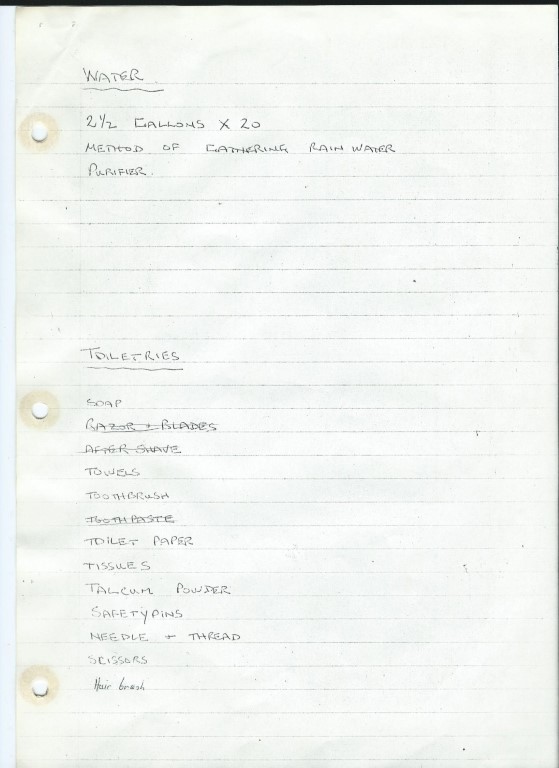 WATER
2½ GALLONS X 20
METHOD OF GATHERING RAIN WATER
PURIFIER.
TOILETRIES
SOAP
RAZOR + BLADES
AFTER SHAVE
TOWELS
TOOTHBRUSH
TOOTHPASTE
TOILET PAPER
TISSUES
TALCUM POWDER
SAFETY PINS
NEEDLE + THREAD
SCISSORS
Hair brush